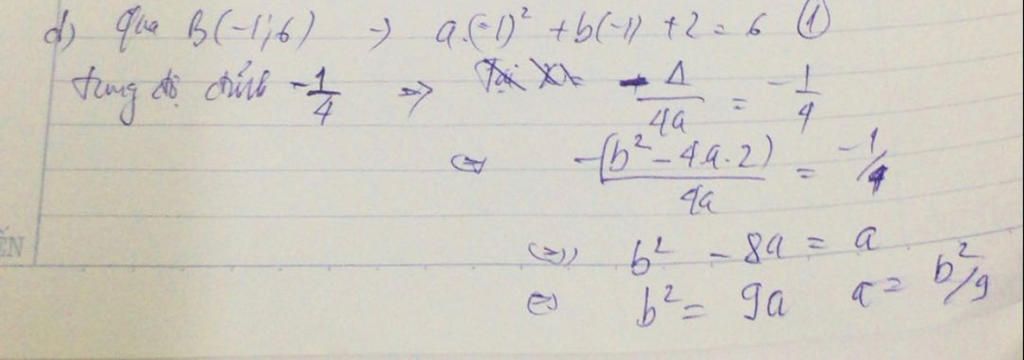 d) qua B(-1;6) → a.(-1)² + b(-1) + 2 = 6 ①
tung độ đỉnh -1/4 => -Δ/4a = -1/4
<=> -(b² - 4a.2)/4a = -1/4
<=> b² - 8a = a
<=> b² = 9a a = b²/9
ẾN